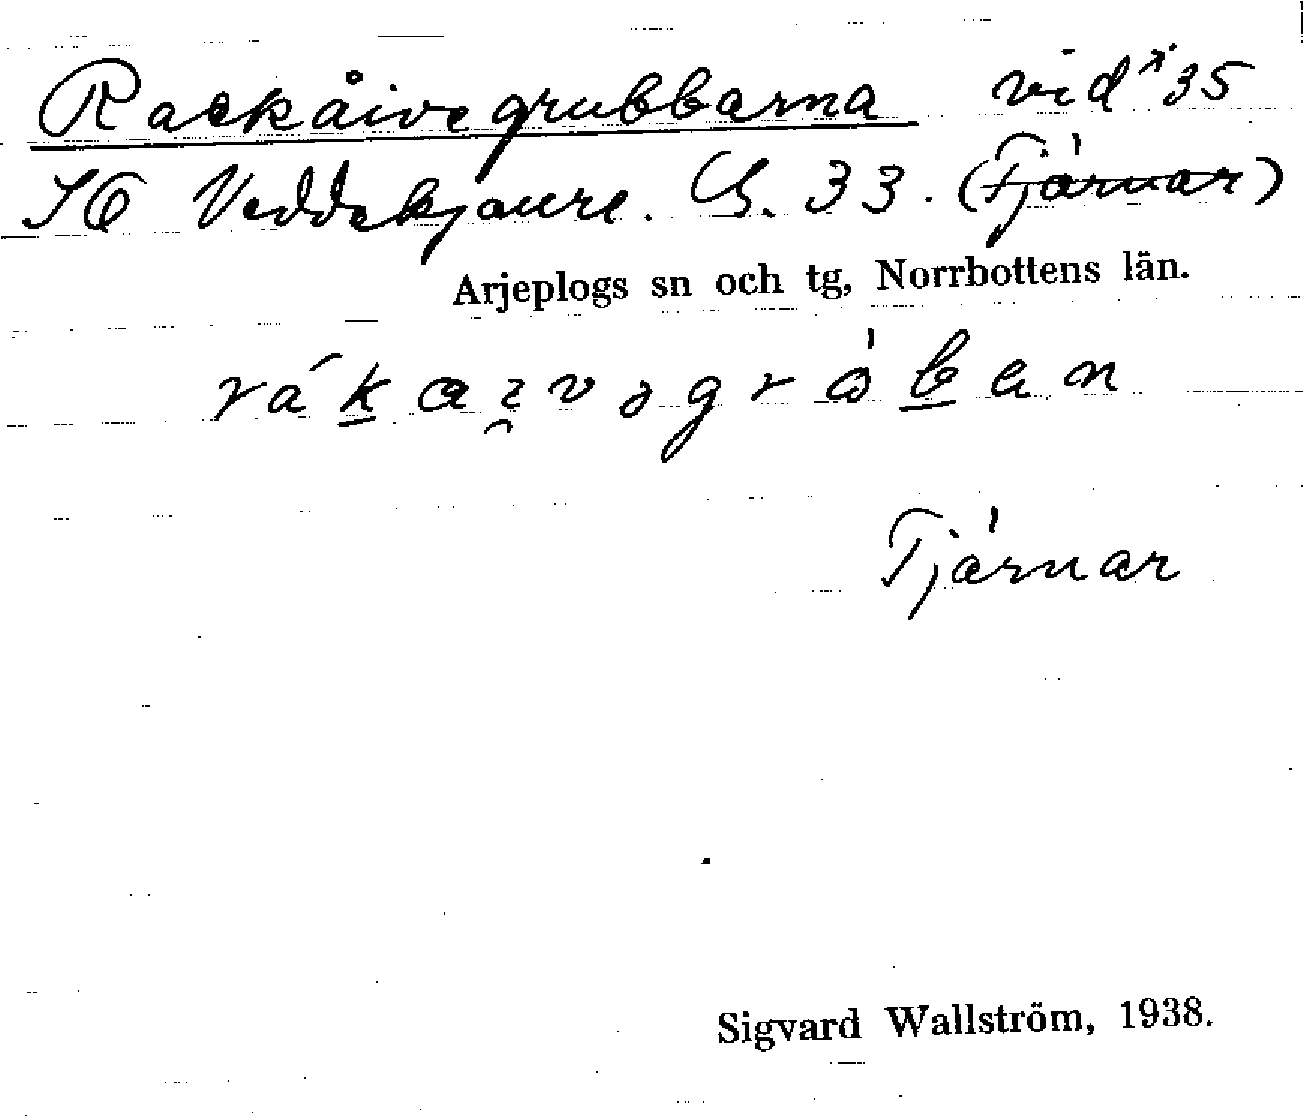 Rackåivegrubbarna vid x 35
SO Veddekjaure. G. 33. (Tjárnar)
Arjeplogs sn och tg, Norrbottens län.
Tjárnar
Sigvard Wallström, 1938.